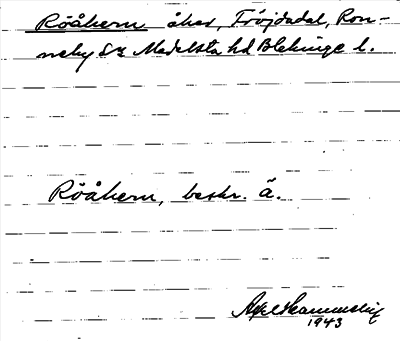 Röåkern åker, Tröjdadal, Ron-
neby sn Medelsta hd Blekinge l.
Röåkern, beskr. ä.
Axel
1943